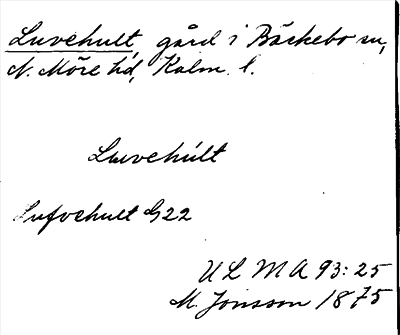 Luvehult, gård i Bäckebo sn,
N. Möre hd, Kalm. l.
Luvehúlt
Lufvehult G 22
ULMA 93:25
M. Jonsson 1875